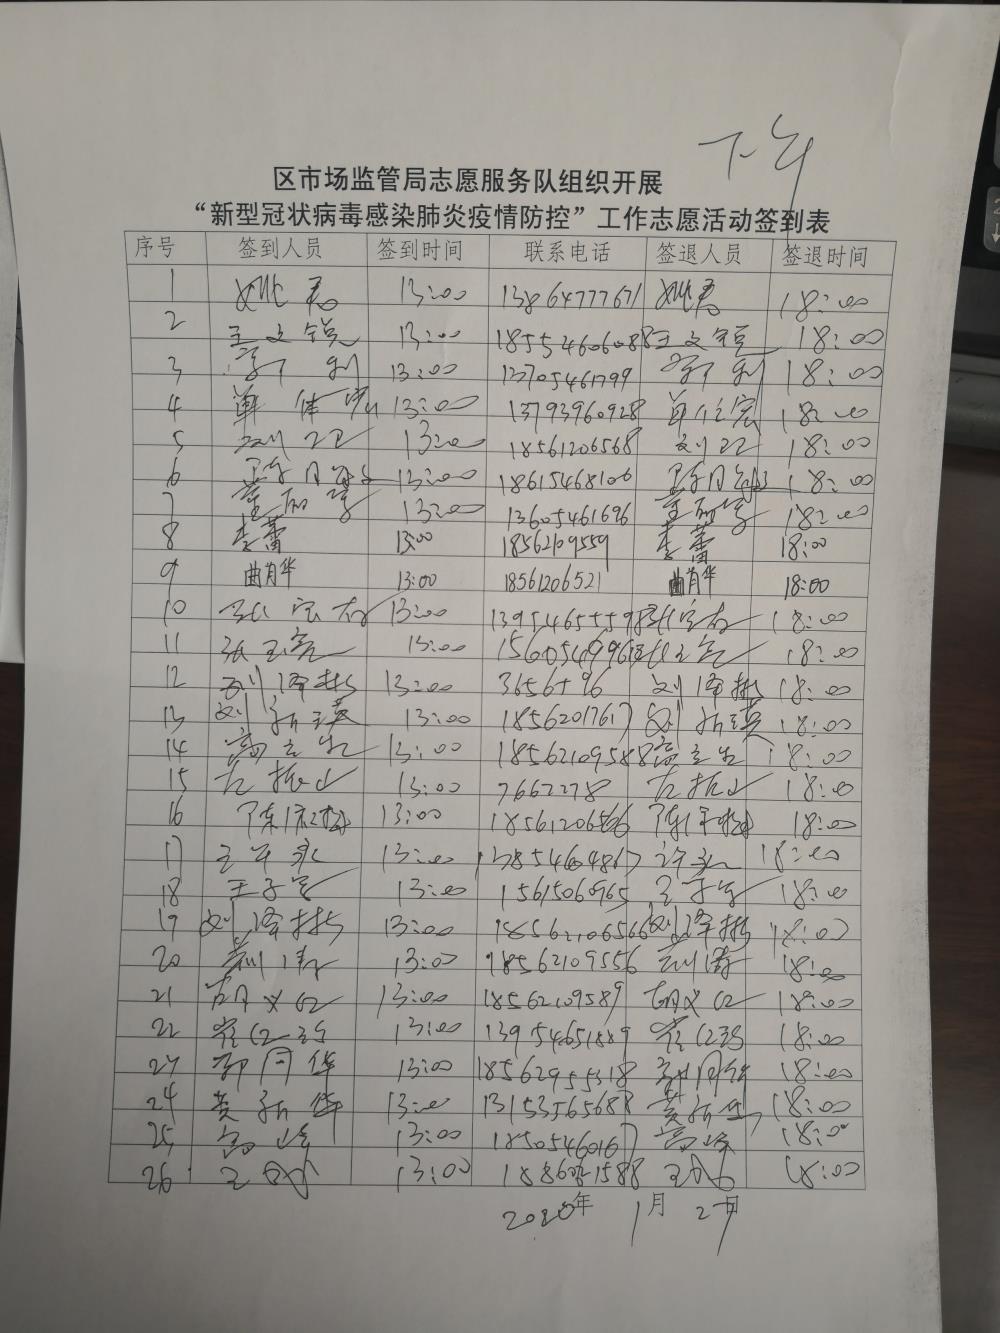 下午
区市场监管局志愿服务队组织开展
“新型冠状病毒感染肺炎疫情防控”工作志愿活动签到表
序号 签到人员 签到时间 联系电话 签退人员 签退时间
1 姚志 13:00 13864777671 姚志 18:00
2 王文锐 13:00 18554606088 王文锐 18:00
3 13:00 13705461799 18:00
4 单体宪 13:00 13793960928 18:00
5 刘卫 13:00 18561206568 刘卫 18:00
6 13:00 18615468106 18:00
7 董丽 13:00 13605461696 董丽 18:00
8 李蕾 13:00 18562109559 李蕾 18:00
9 曲肖华 13:00 18561206521 曲肖华 18:00
10 张宝 13:00 13954655598 张宝 18:00
11 张玉亮 13:00 张玉亮 18:00
12 刘泽彬 13:00 刘泽彬 18:00
13 刘新瑛 13:00 18562017617 刘新瑛 18:00
14 高立生 13:00 18562109588 高立生 18:00
15 左振山 13:00 7667278 左振山 18:00
16 陈庆松 13:00 陈庆松 18:00
17 13:00 13854604867 18:00
18 王子军 13:00 15615060965 王子军 18:00
19 刘泽彬 13:00 刘泽彬 18:00
20 13:00 18562109556 18:00
21 胡义 13:00 18562109589 胡义 18:00
22 崔 13:00 13954651889 崔 18:00
23 郭同华 13:00 18562955318 郭同华 18:00
24 黄新华 13:00 13153565688 黄新华 18:00
25 高峰 13:00 18505460167 高峰 18:00
26 王成 13:00 王成 18:00
2020年 1月 27日